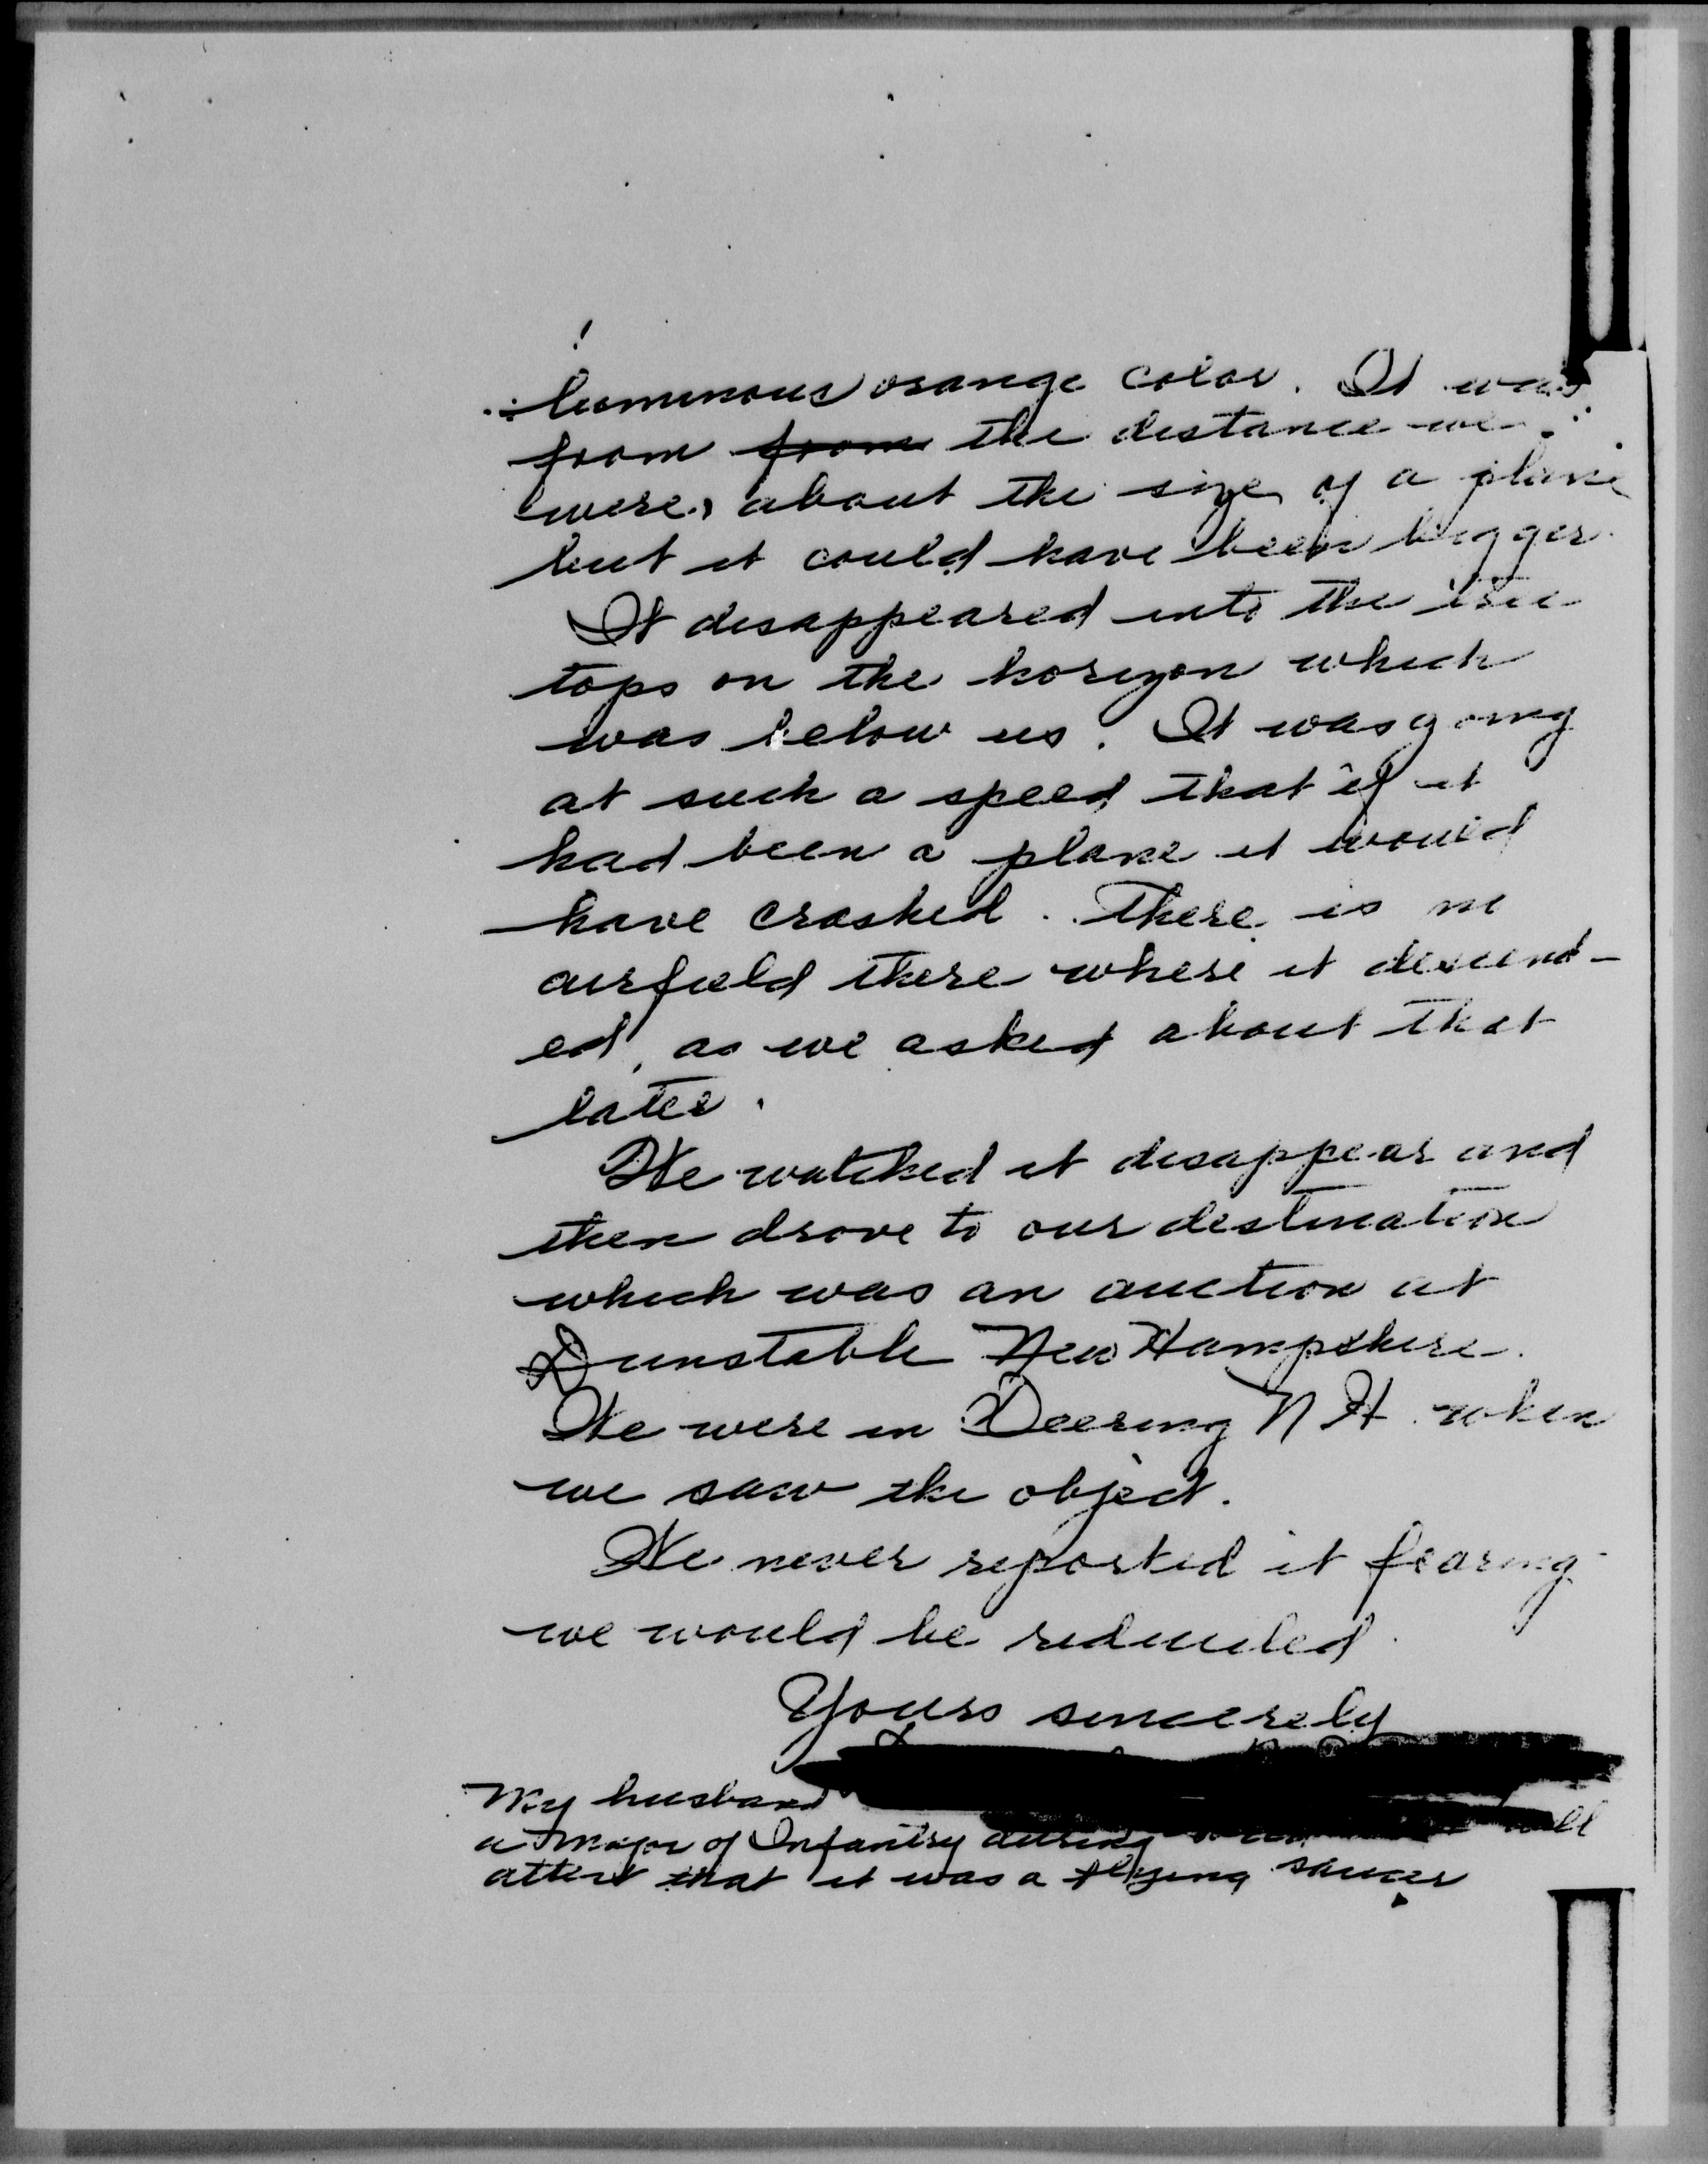 luminous orange color. It was
from from the distance we
were, about the size of a plane
but it could have been bigger.
It disappeared into the tree
tops on the horizon which
was below us. It was going
at such a speed that if it
had been a plane it would
have crashed. There is no
airfield there where it descend-
ed, as we asked about that
later.
We watched it disappear and
then drove to our destination
which was an auction at
Dunstable New Hampshire.
We were in Deering N H when
we saw the object.
We never reported it fearing
we would be rediculed.
Yours sincerely
My husband
a Major of Infantry during will
attest that it was a flying saucer